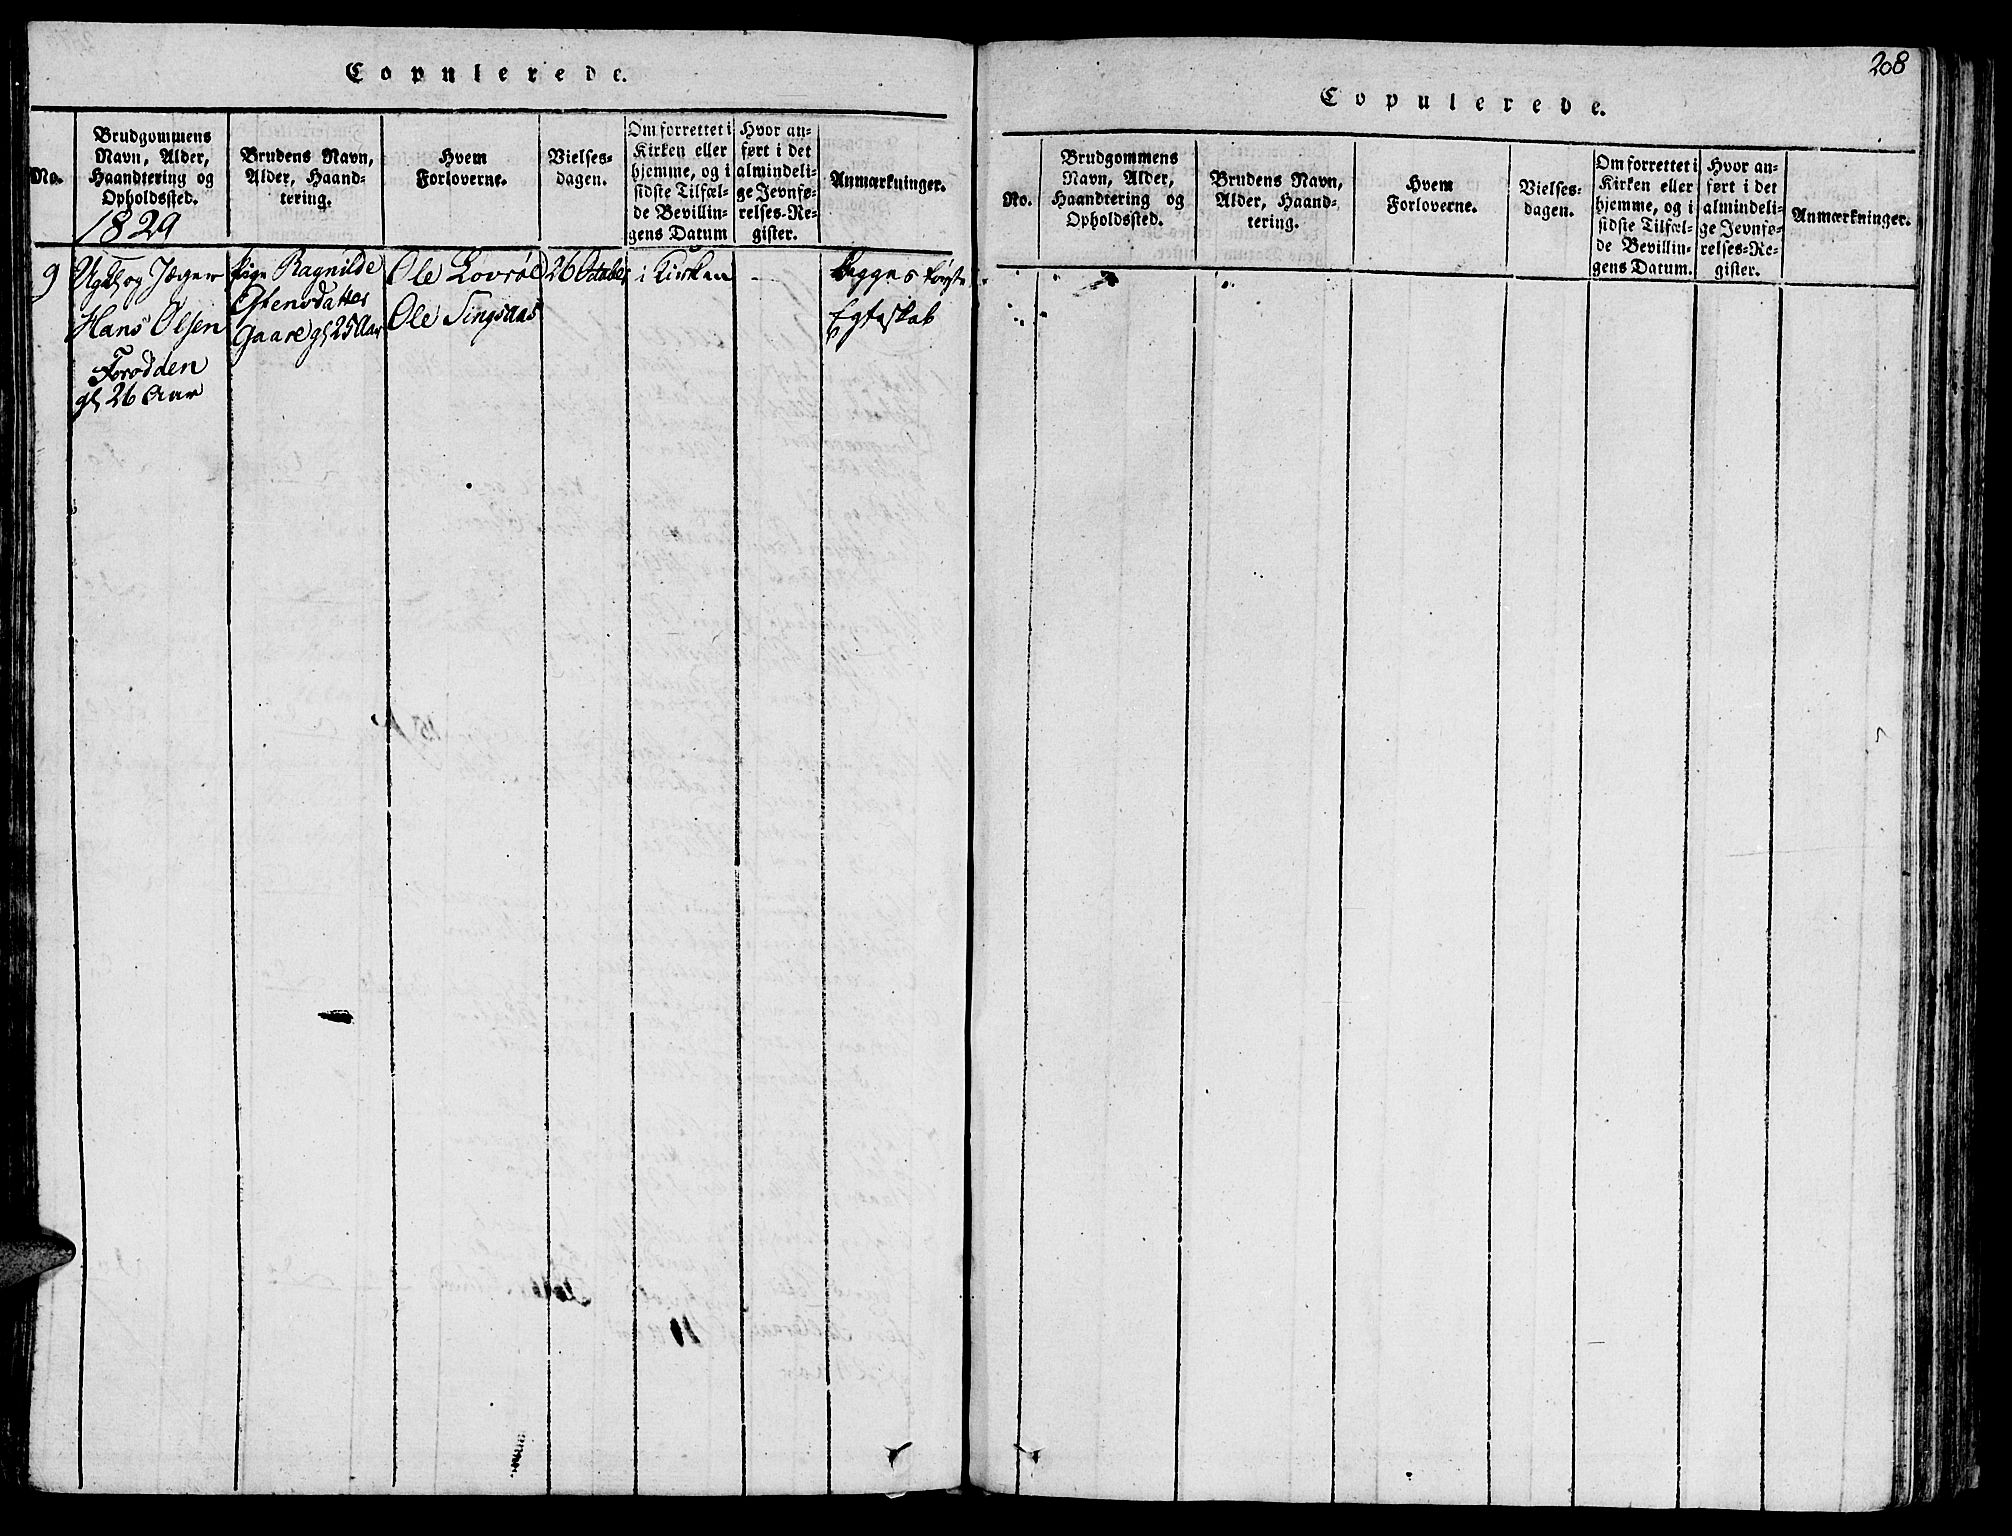 Copulerede.
No.
Brudgommens
Navn, Alder,
Haandtering og
Opholdssted.
1829
Brudens Navn,
Alder, Haand-
tering.
Hvem
Forloverne.
Vielses-
dagen.
Om forrettet i
Kirken eller
hjemme, og i
sidste Tilfæl-
de Bevillin-
gens Datum
Hvor an-
ført i det
almindeli-
ge Jevnfø-
relses-Re-
gister.
Anmærkninger.
9
og Jæger
Hans Olsen
Forodden
gl 26 Aar
Pige Ragnilde
Estensdatter
Gaare gl 25 Aar
Ole Lovrøe
Ole Singsaas
26 October
i Kirken
Begges første
Egteskab
208
Copulerede.
No.
Brudgommens
Navn, Alder,
Haandtering og
Opholdssted.
Brudens Navn,
Alder, Haand-
tering.
Hvem
Forloverne.
Vielses-
dagen.
Om forrettet i
Kirken eller
hjemme, og i
sidste Tilfæl-
de Bevillin-
gens Datum.
Hvor an-
ført i det
almindeli-
ge Jevnfø-
relses-Re-
gister.
Anmærkninger.